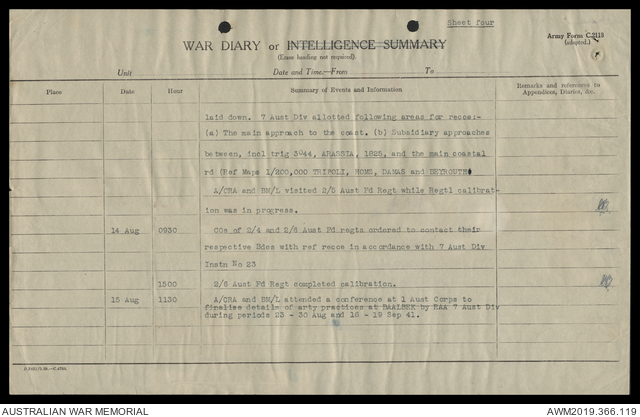 Sheet four
WAR DIARY or INTELLIGENCE SUMMARY
(Erase heading not required).
Army Form C.2118
(adapted.)
Unit Date and Time.—From To
Place Date Hour Summary of Events and Information Remarks and references to
Appendices, Diaries, &c.
laid down. 7 Aust Div allotted following areas for recce:-
(a) The main approach to the coast. (b) Subsidiary approaches
between, incl trig 3044, ARASSIA, 1825, and the main coastal
rd (Ref Maps 1/200,000 TRIPOLI, HOMS, DAMAS and BEYROUTH)
A/CRA and BM/L visited 2/5 Aust Fd Regt while Regtl calibrat-
ion was in progress.
14 Aug 0930 COs of 2/4 and 2/6 Aust Fd regts ordered to contact their
respective Bdes with ref recce in accordance with 7 Aust Div
Instn No 23
1500 2/6 Aust Fd Regt completed calibration.
15 Aug 1130 A/CRA and BM/L attended a conference at 1 Aust Corps to
finalise details of arty practices at BAALBEK by RAA 7 Aust Div
during periods 23 - 30 Aug and 16 - 19 Sep 41.
AUSTRALIAN WAR MEMORIAL AWM2019.366.119